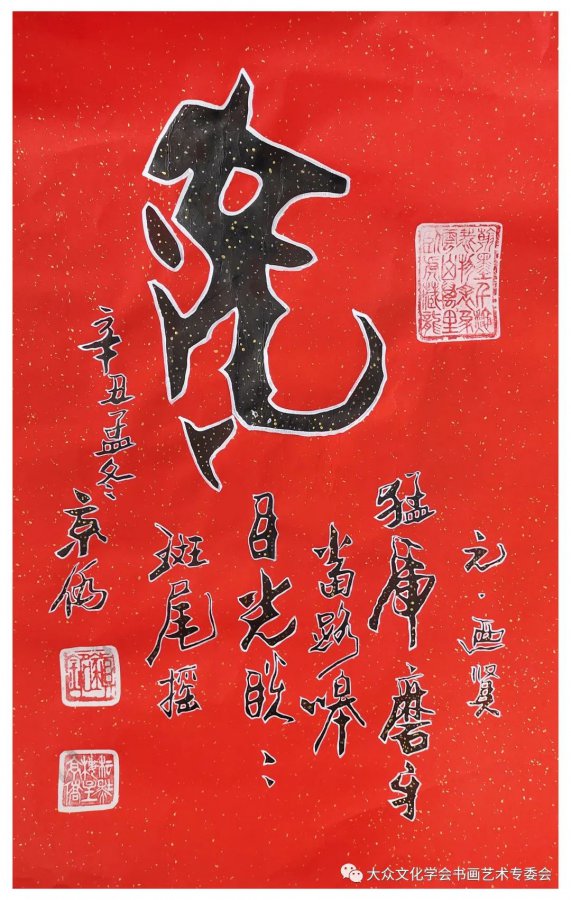 虎
元·迺賢
猛虎磨牙
當路嗥
目光睒〻
斑尾摇
辛丑孟冬
大众文化学会书画艺术专委会